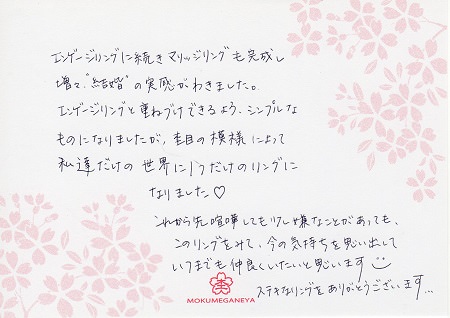 エンゲージリングに続きマリッジリングも完成し
増々"結婚"の実感がわきました。
エンゲージリングと重ねづけできるよう、シンプルな
ものになりましたが、杢目の模様によって
私達だけの世界に1つだけのリングに
なりました♡
これから先喧嘩しても少し嫌なことがあっても、
このリングをみて、今の気持ちを思い出して
いつまでも仲良くいたいと思います
ステキなリングをありがとうございます...
杢
MOKUMEGANEYA